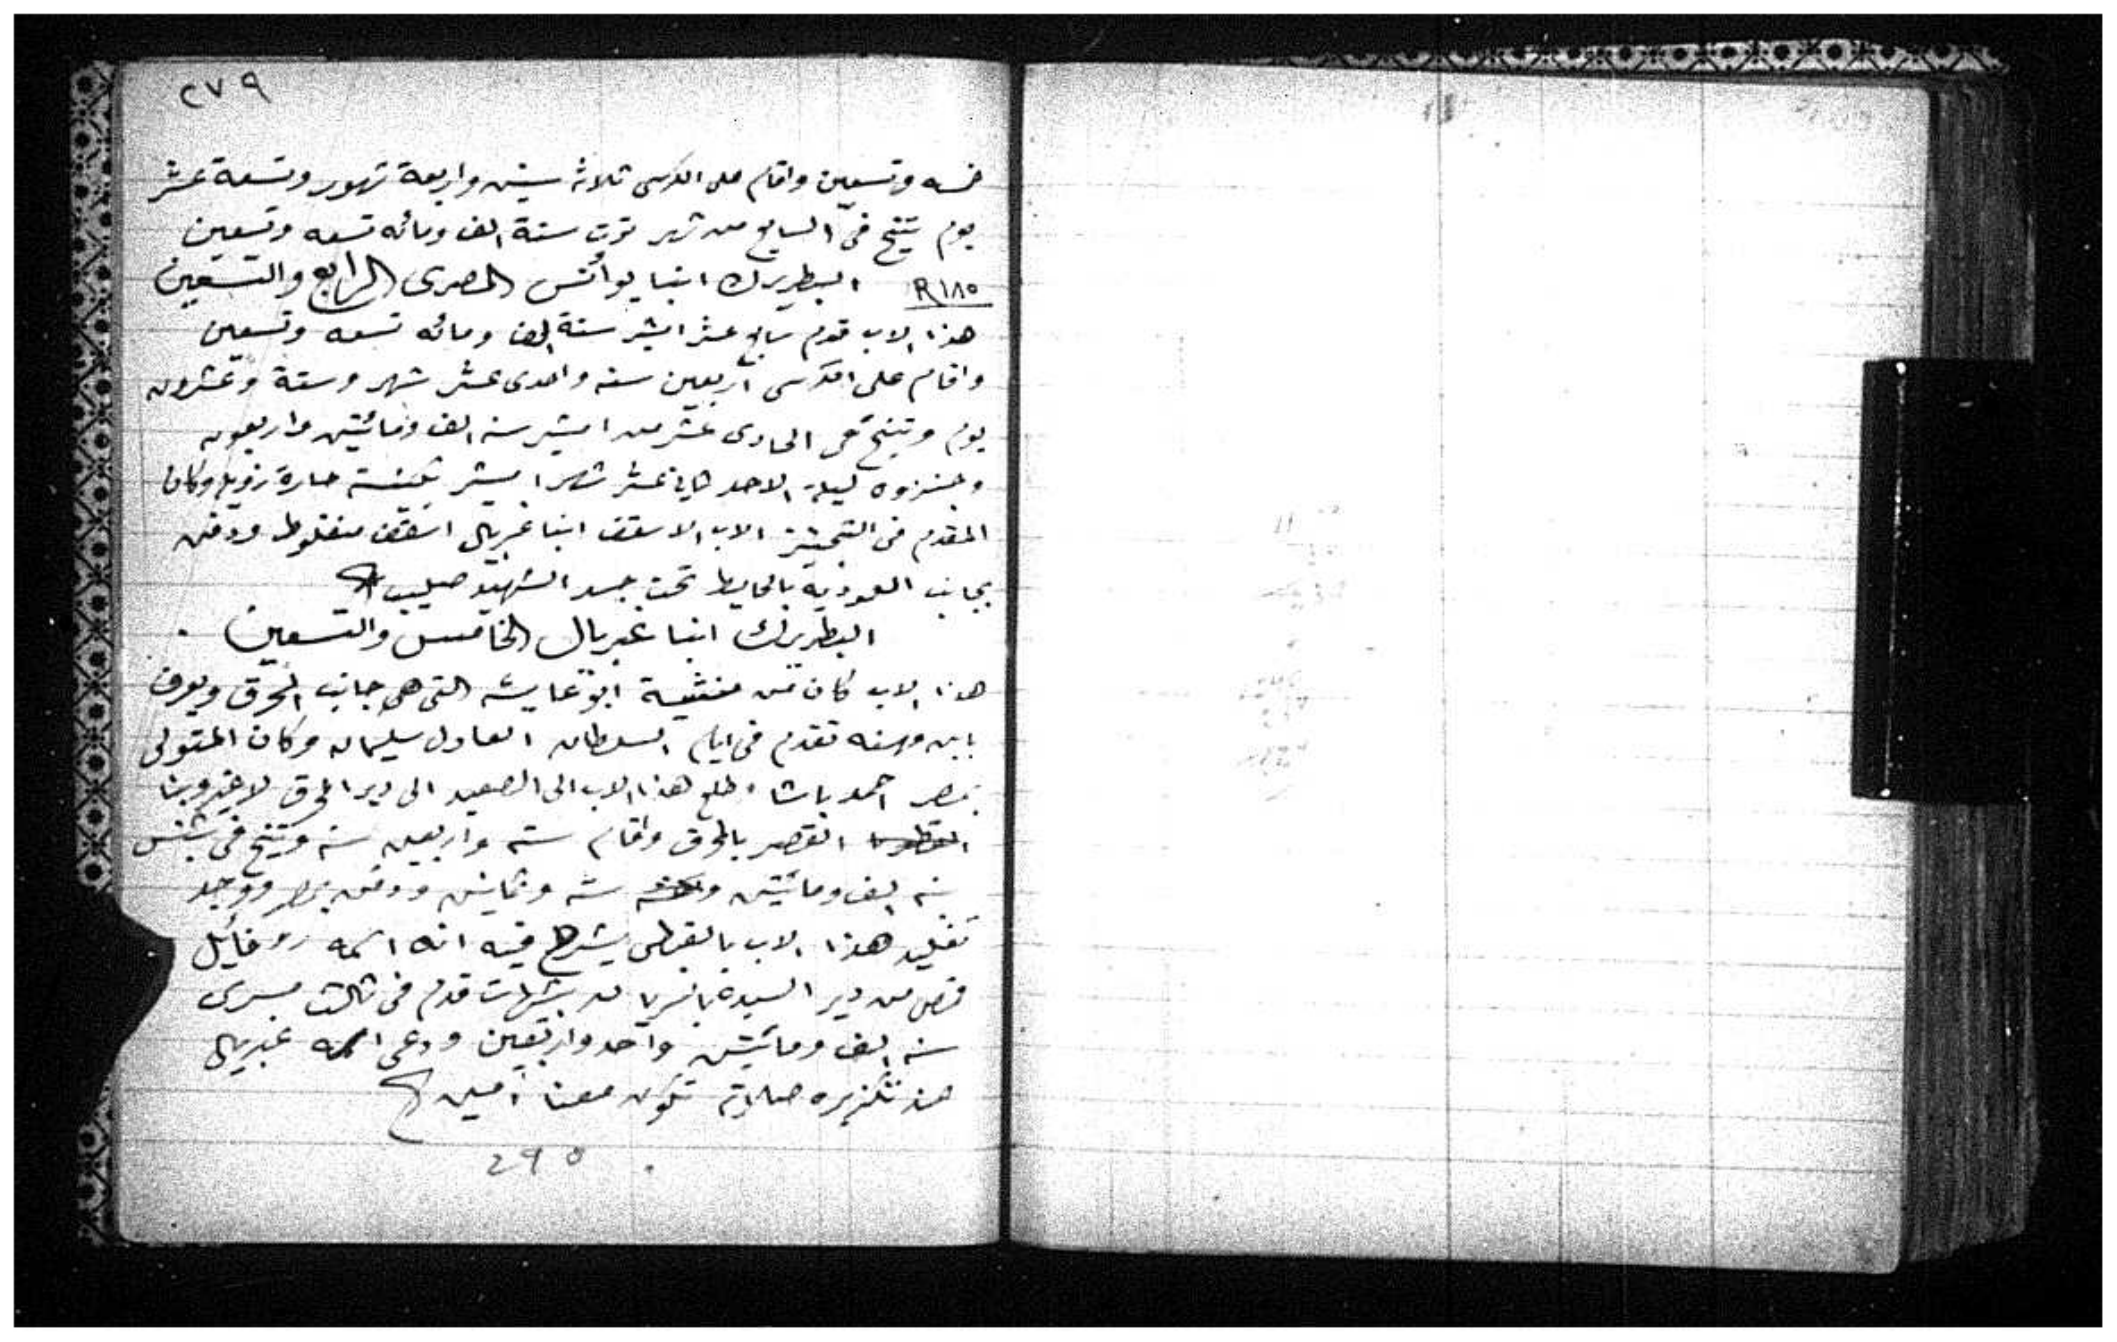 ٢٧٩
خمسه وتسعين واقام على الكرسى ثلاثة سنين واربعة شهور وتسعة عشر
يوم تنيح فى السابع من شهر توت سنة الف ومائه تسعه وتسعين
R١٨٥ البطريرك انبا يوأنس المصرى الرابع والتسعين
هذا الاب قدم سابع عشر امشير سنة الف ومائه تسعه وتسعين
واقام على الكرسى أربعين سنه واحدى عشر شهر وستة وعشرون
يوم وتنيح فى الحادى عشر من امشير سنه الف ومائتين واربعون
وجنزوه ليلة الاحد عشر شهر امشير بكنيسة حارة زويله وكان
المقدم فى التجنيز الاب الاسقف انبا غبريال اسقف منفلوط ودفن
بجانب المعودية بالحايط تحت جسد الشهيد صليب
البطريرك انبا غبريال الخامس والتسعين
هذا الاب كان من منشية ابو عايشه التى هى جانب المحرق ويعرف
بابن مهنه تقدم فى ايام السلطان العادل سليمان وكان المتولى
بمصر احمد باشا وطلع هذا الاب الى الصعيد الى دير المحرق
القصير بالمحرق واقام سته واربعين سنه وتنيح فى بشنس
سنه الف ومائتين سته وثمانين ودفن بمصر ووجد
تقليد هذا الاب بالقبطى يشرح فيه انه اسمه روفائيل
قص من دير السيده بالسريان بشيهات قدم فى ثالث مسرى
سنه الف ومائتين واحد واربعين ودعى اسمه غبريال
صلاته تكون معنا أمين
٢٩٥